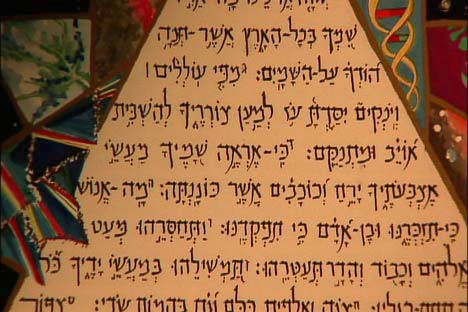 שִׁמְךָ בְּכָל־הָאָרֶץ אֲשֶׁר־תְּנָה
הוֹדְךָ עַל־הַשָּׁמָיִם: ג מִפִּי עוֹלְלִים ׀
וְיֹנְקִים יִסַּדְתָּ עֹז לְמַעַן צוֹרְרֶיךָ לְהַשְׁבִּית
אוֹיֵב וּמִתְנַקֵּם: ד כִּי־אֶרְאֶה שָׁמֶיךָ מַעֲשֵׂי
אֶצְבְּעֹתֶיךָ יָרֵחַ וְכוֹכָבִים אֲשֶׁר כּוֹנָנְתָּה: ה מָה־אֱנוֹשׁ
כִּי־תִזְכְּרֶנּוּ וּבֶן־אָדָם כִּי תִפְקְדֶנּוּ: ו וַתְּחַסְּרֵהוּ מְּעַט
אֱלֹהִים וְכָבוֹד וְהָדָר תְּעַטְּרֵהוּ: ז תַּמְשִׁילֵהוּ בְּמַעֲשֵׂי יָדֶיךָ כֹּל
תַחַת־רַגְלָיו: ח צֹנֶה וַאֲלָפִים כֻּלָּם וְגַם בַּהֲמוֹת שָׂדָי: ט צִפּוֹר